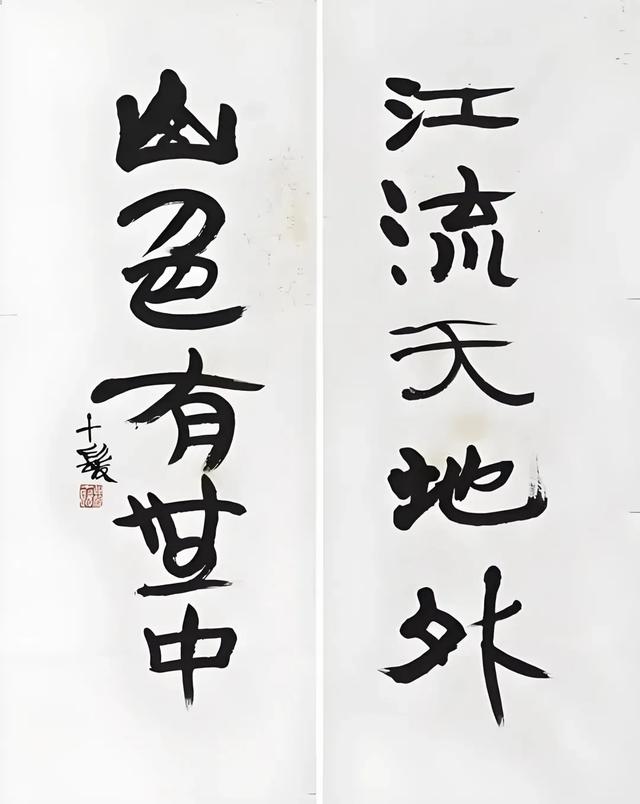 江流天地外
山色有無中
十髮